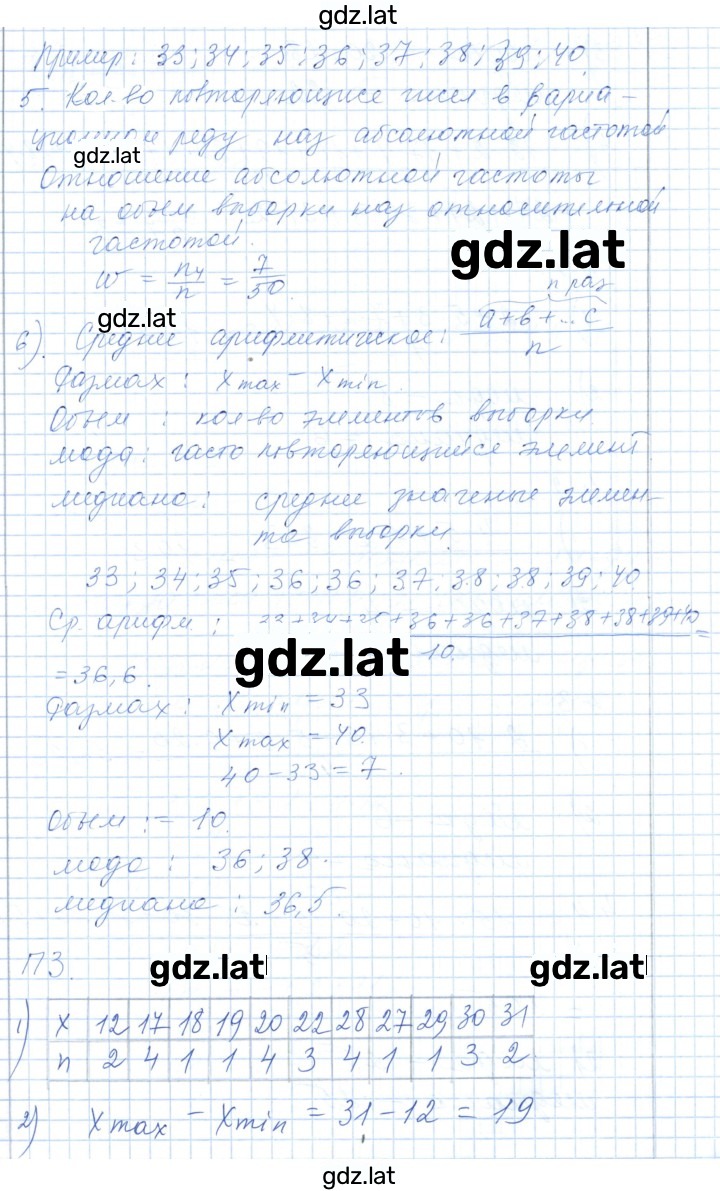 gdz.lat
Пример: 33; 34; 35; 36; 37; 38; 39; 40
5. Кол-во повторяющисе чисел в вариа-
ционном реду наз абсолютной частотой
gdz.lat
Отношение абсолютной частоты
на объем выборки наз относительной
частотой.
gdz.lat
W = n₄/n = 7/50.
gdz.lat
n раз
6). Среднее арифметическое: a+b+...c / n
Размах: Xmax - Xmin.
Объем: кол-во элементов выборки.
мода: часто повторяющийсе элемент.
медиана: среднее значение элемен-
та выборки.
33; 34; 35; 36; 36; 37; 38; 38; 39; 40
Ср. арифм.: 33+34+35+36+36+37+38+38+39+40 / 10. =
gdz.lat
= 36,6.
Размах: Xmin = 33
Xmax = 40.
40 - 33 = 7.
Объем: = 10.
мода: 36; 38.
медиана: 36,5.
ПЗ.
gdz.lat
gdz.lat
1) X 12 17 18 19 20 22 28 27 29 30 31
n 2 4 1 1 4 3 4 1 1 3 2
2) Xmax - Xmin = 31 - 12 = 19
gdz.lat